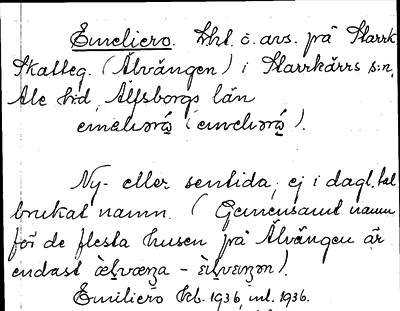 Emeliero. lht. o. avs. på Starrk
Skatteg. (Älvängen) i Starrkärrs s:n,
Ale hd, Älfsborgs län

Ny- eller sentida, ej i dagl. tal
brukat namn. (Gemensamt namn
för de flesta husen på Älvängen är
endast
Emiliero kb. 1936, ml. 1936.